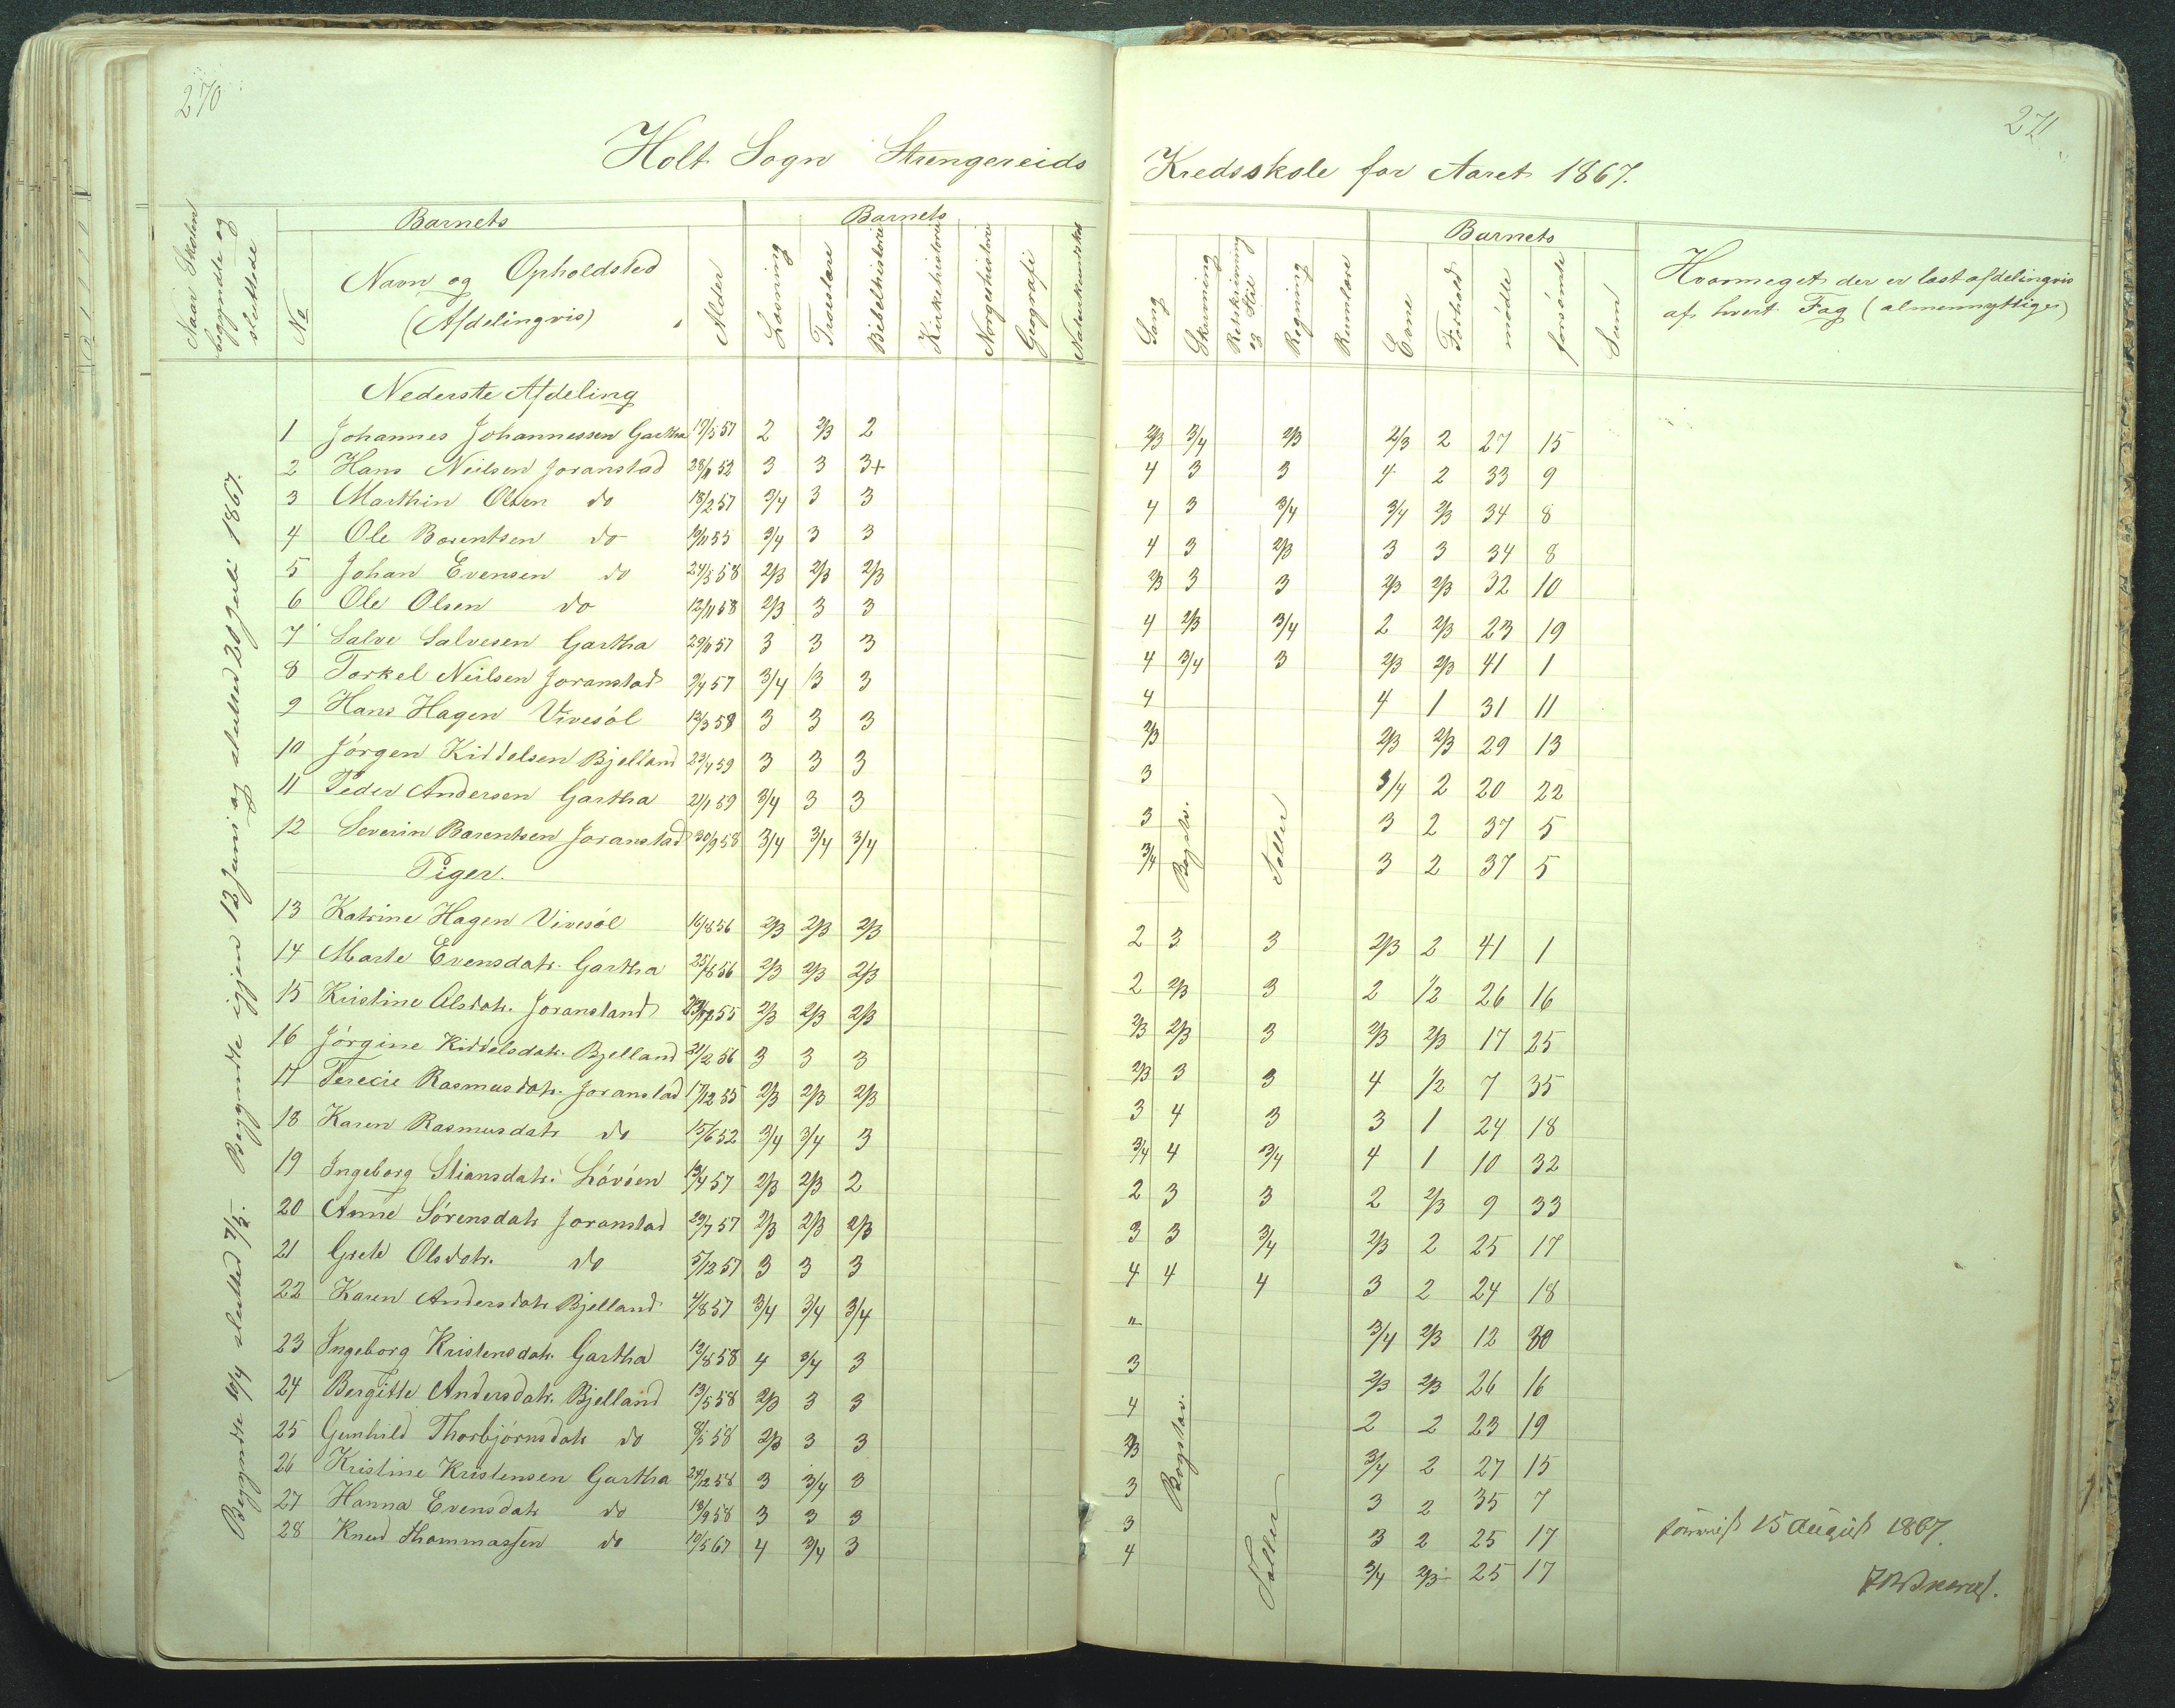 270
271
Holt Sogn Strengereids Kredsskole for Aaret 1867.
Naar Skolen begyndte og sluttede
No
Barnets
Navn og Opholdsted
(Afdelingvis)
Alder
Barnets
Læsning
Troeslære
Bibelhistorie
Kirkehistorie
Norgeshistorie
Geografi
Naturkundskab
Sang
Skrivning
Retskrivning og Stil
Regning
Rumlære
Barnets
Evne
Forhold
mødte
forsømte
Sum
Hvormeget der er læst afdelingvis
af hvert Fag (almennyttige)
Begyndte 10/4 slutted 7/5. Begyndte igjen 13 Juni og slutted 20 Juli 1867.
Nederste Afdeling
1 Johannes Johannessen Gartha 17/5 57 2 2/3 2 2/3 3/4 2/3 2/3 2 27 15
2 Hans Neilsen Joranstad 28/11 52 3 3 3+ 4 3 3 4 2 33 9
3 Marthin Olsen do 18/2 57 3/4 3 3 4 3 3/4 3/4 2/3 34 8
4 Ole Barentsen do 19/11 55 3/4 3 3 4 3 2/3 3 3 34 8
5 Johan Evensen do 24/5 58 2/3 2/3 2/3 2/3 3 3 2/3 2/3 32 10
6 Ole Olsen do 12/11 58 2/3 3 3 4 2/3 3/4 2 2/3 23 19
7 Salve Salvesen Gartha 29/6 57 3 3 3 4 3/4 3 2/3 2/3 41 1
8 Torkel Neilsen Joranstad 9/4 57 3/4 3 3 4 4 1 31 11
9 Hans Hagen Vivesöl 12/3 58 3 3 3 2/3 2/3 2/3 29 13
10 Jörgen Kiddelsen Bjelland 23/4 59 3 3 3 3 3/4 2 20 22
11 Peder Andersen Gartha 21/1 59 3/4 3 3 3 3 2 37 5
12 Severin Barentsen Joranstad 30/9 58 3/4 3/4 3/4 3/4 Bogstv. Taller 3 2 37 5
Piger.
13 Katrine Hagen Vivesöl 16/8 56 2/3 2/3 2/3 2 3 3 2/3 2 41 1
14 Marte Evensdatr. Gartha 25/8 56 2/3 2/3 2/3 2 2/3 3 2 1/2 26 16
15 Kristine Olsdatr. Joranstand 55 2/3 2/3 2/3 2/3 2/3 3 2/3 2/3 17 25
16 Jörgine Kiddelsdatr. Bjelland 21/2 56 3 3 3 2/3 3 3 4 1/2 7 35
17 Terecie Rasmusdatr. Joranstad 17/12 55 2/3 2/3 2/3 3 4 3 3 1 24 18
18 Karen Rasmusdatr do 15/6 52 3/4 3/4 3 3/4 4 3/4 4 1 10 32
19 Ingeborg Stiansdatr. Lövöen 13/4 57 2/3 2/3 2 2 3 3 2 2/3 9 33
20 Anne Sörensdatr Joranstad 29/7 57 2/3 2/3 2/3 3 3 3/4 2/3 2 25 17
21 Grete Olsdatr. do 5/12 57 3 3 3 4 4 4 3 2 24 18
22 Karen Andersdatr Bjelland 4/8 57 3/4 3/4 3/4 " 3/4 2/3 12 30
23 Ingeborg Kristensdatr. Gartha 13/8 58 4 3/4 3 3 2/3 2/3 26 16
24 Bergitte Andersdatr. Bjelland 13/5 58 2/3 3 3 4 2 2 23 19
25 Gunhild Thorbjörnsdatr do 8/5 58 2/3 3 3 2/3 3/4 2 27 15
26 Kristine Kristensen Gartha 24/12 58 3 3/4 3 3 Bogstav. 3 2 35 7
27 Hanna Evensdatr do 18/9 58 3 3 3 3 3 2 25 17
28 Knud Thommassen do 10/5 67 4 3/4 3 4 Taller 3/4 2/3 25 17
15 August 1867.